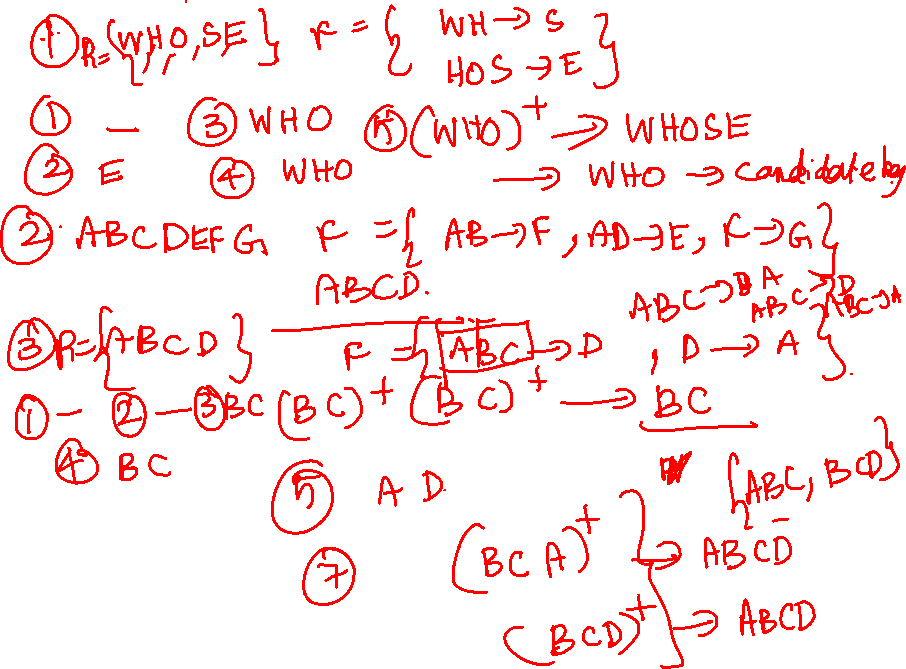 ① R={W,H,O,S,E} F = { WH→S
HOS→E }
① – ③ WHO ⑤ (WHO)⁺ → WHOSE
② E ④ WHO → WHO → candidate key
② ABCDEFG F = { AB→F, AD→E, F→G }
ABCD. ABC→ A ABC→D ABC→A
③ R={ABCD} F = { ABC→D, D→A }.
① – ② – ③ BC (BC)⁺ (BC)⁺ → BC
④ BC
⑤ AD {ABC, BCD}
⑦ (BCA)⁺ → ABCD
(BCD)⁺ → ABCD